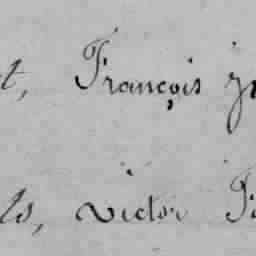 t, François
ls, victor